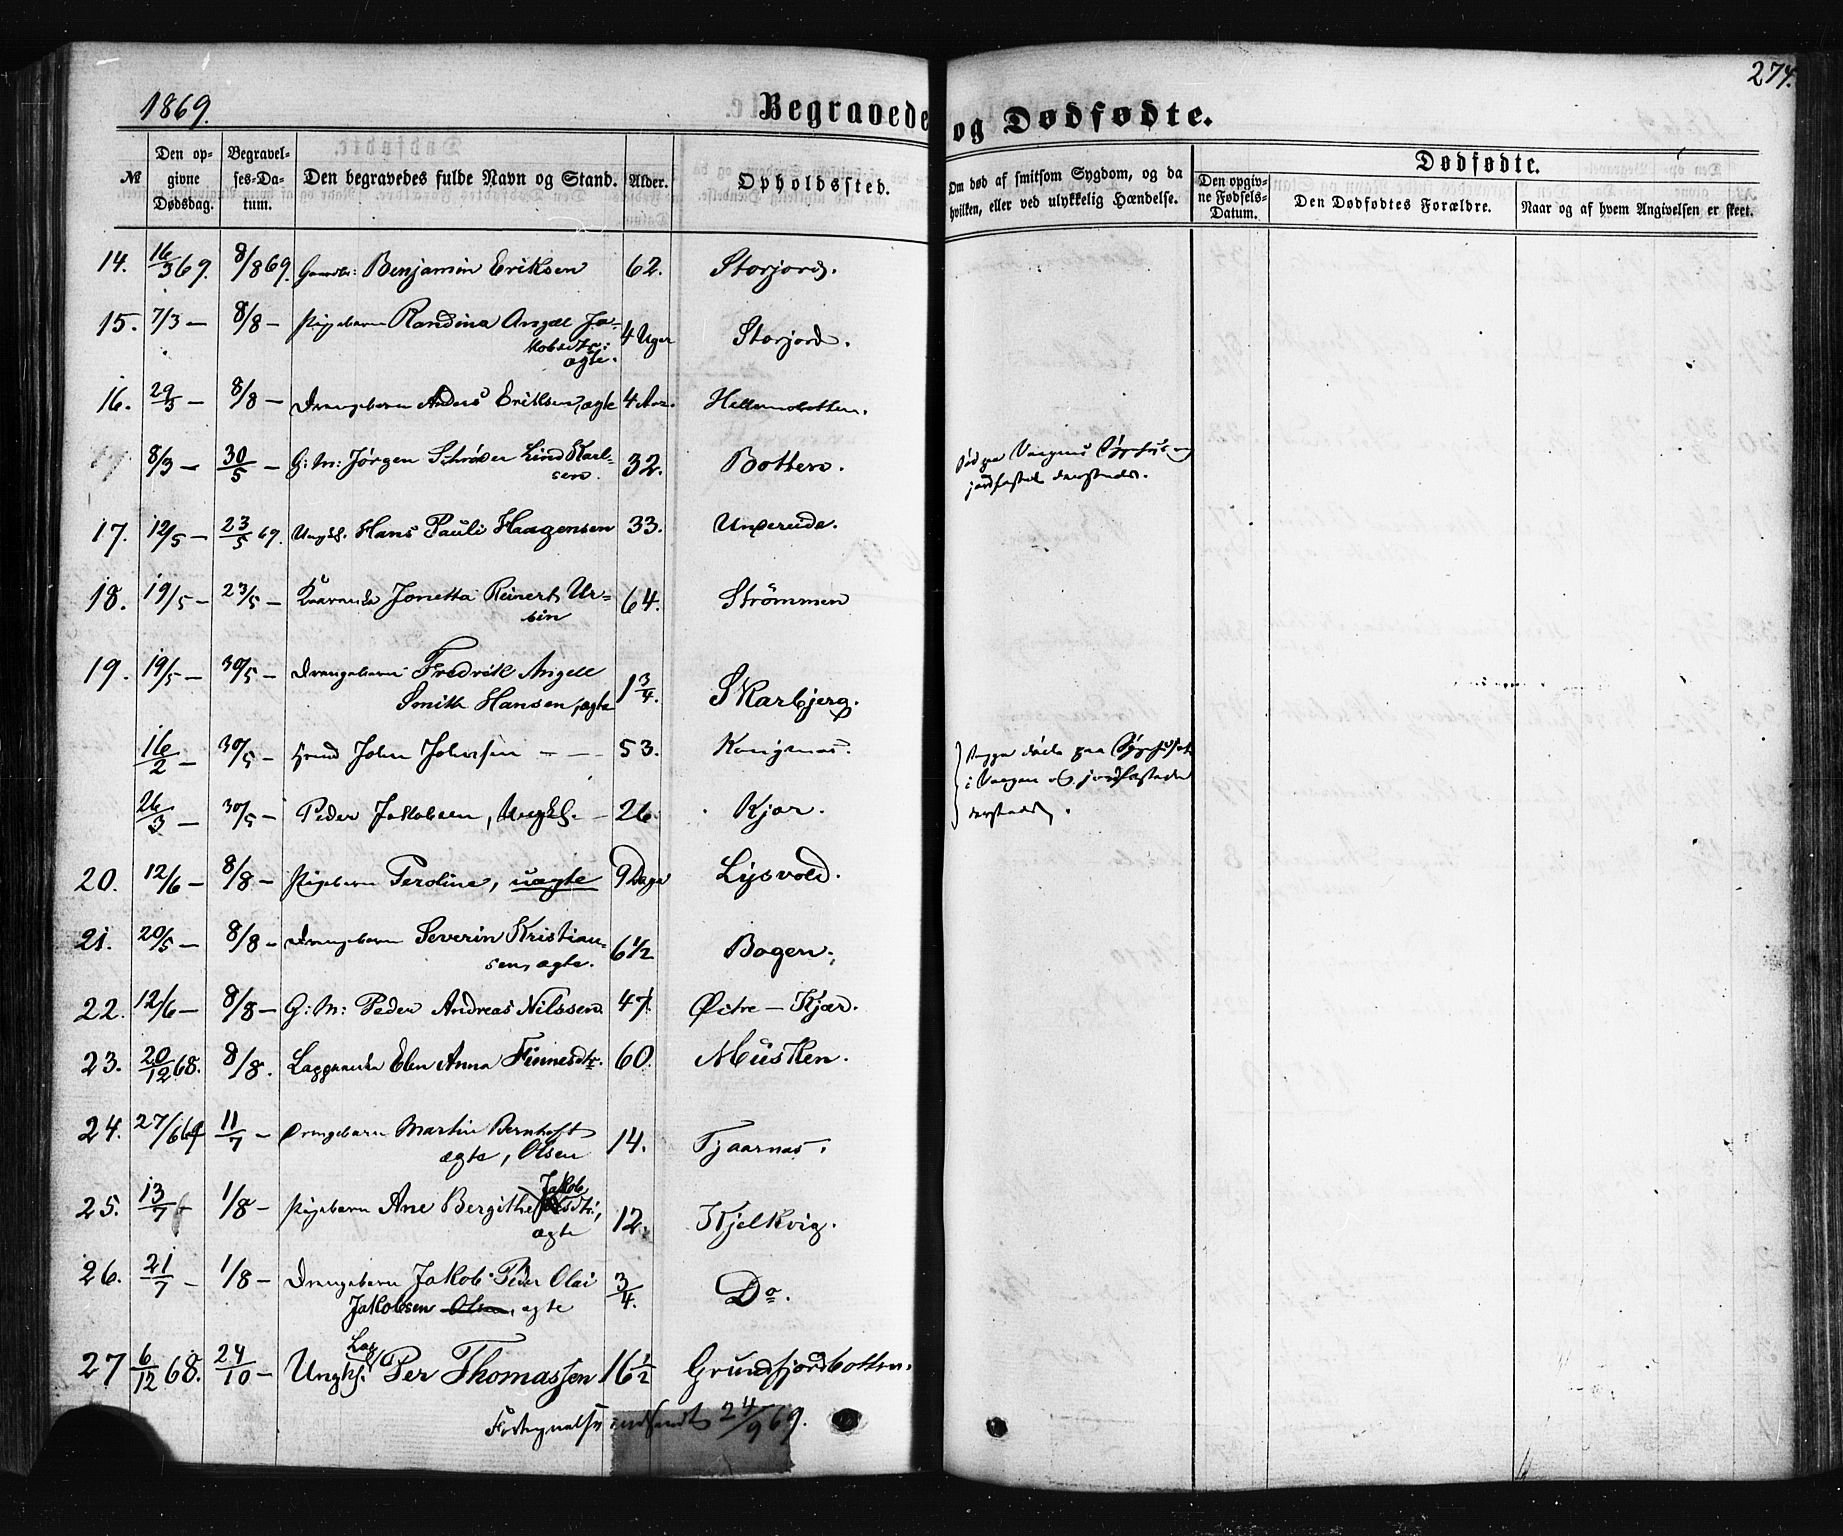 1869.
Begravede og Dødfødte.
274.
№
Den opgivne Dødsdag.
Begravelses-Datum.
Den begravedes fulde Navn og Stand.
Alder.
Opholdssted.
Om død af smitsom Sygdom, og da hvilken, eller ved ulykkelig Hændelse.
Dødfødte.
Den opgivne Fødsels-Datum.
Den Dødfødtes Forældre.
Naar og af hvem Angivelsen er skeet.
14. 16/3 69. 8/8 69. Benjamin Eriksen 62. Storjord.
15. 7/3 — 8/8 — Pigebarn Randina Angel Ja-
kobsdtr: 4 Uger Storjord.
ægte.
16. 29/3 — 8/8 — Drengebarn Anders Eriksen, ægte 4 Aar. Hellemobotten.
8/3 — 30/5 — G: M: Jørgen Schrøder Lind Karl- 32. Botten. Død paa Vaagens Sygehus og
sen. jordfæstet dersteds.
17. 12/5 — 23/5 69. Ungk. Hans Pauli Haagensen 33. 
18. 19/5 — 23/5 — Jonetta Reinerts Ur- 64. Strömmen
sin
19. 19/5 — 30/5 — Drengebarn Fredrik Angell
Smith Hansen, ægte 1 3/4. Skarbjerg.
16/2 — 30/5 — John Johnsen — — 53. Kongsnæs. Begge døde paa Sygehuset
i Vaagen og jordfæstede
26/3 — 30/5 — Peder Jakobsen, Ungk. — 26. Kjær. dersteds.
20. 12/6 — 8/8 — Pigebarn Peroline, uægte 9 Dage Lysvold.
21. 20/5 — 8/8 — Drengebarn Severin Kristian- 6 1/2 Bogen.
sen, ægte.
22. 12/6 — 8/8 — G: M: Peder Andreas Nilssen 47. Østre — Kjær.
23. 20/12 68. 8/8. Elen Anna Finnesdtr. 60. Müsken.
24. 27/6 69 11/7 — Drengebarn Martin Bernhoft
ægte, Olsen 14. Tjaarnæs.
25. 13/7 — 1/8 — Pigebarn Ane Bergithe Jakobsdtr,
ægte 12. Kjelkvig.
26. 21/7 — 1/8 — Drengebarn Jakob Peder Olai
Jakobsen Olsen, ægte 3/4. Do.
27 6/12 68. 24/10 — Ungk. Lap Per Thomassen 16 1/2 Grundfjordbotten.
Fortegnelse indsendt 24/9 69.